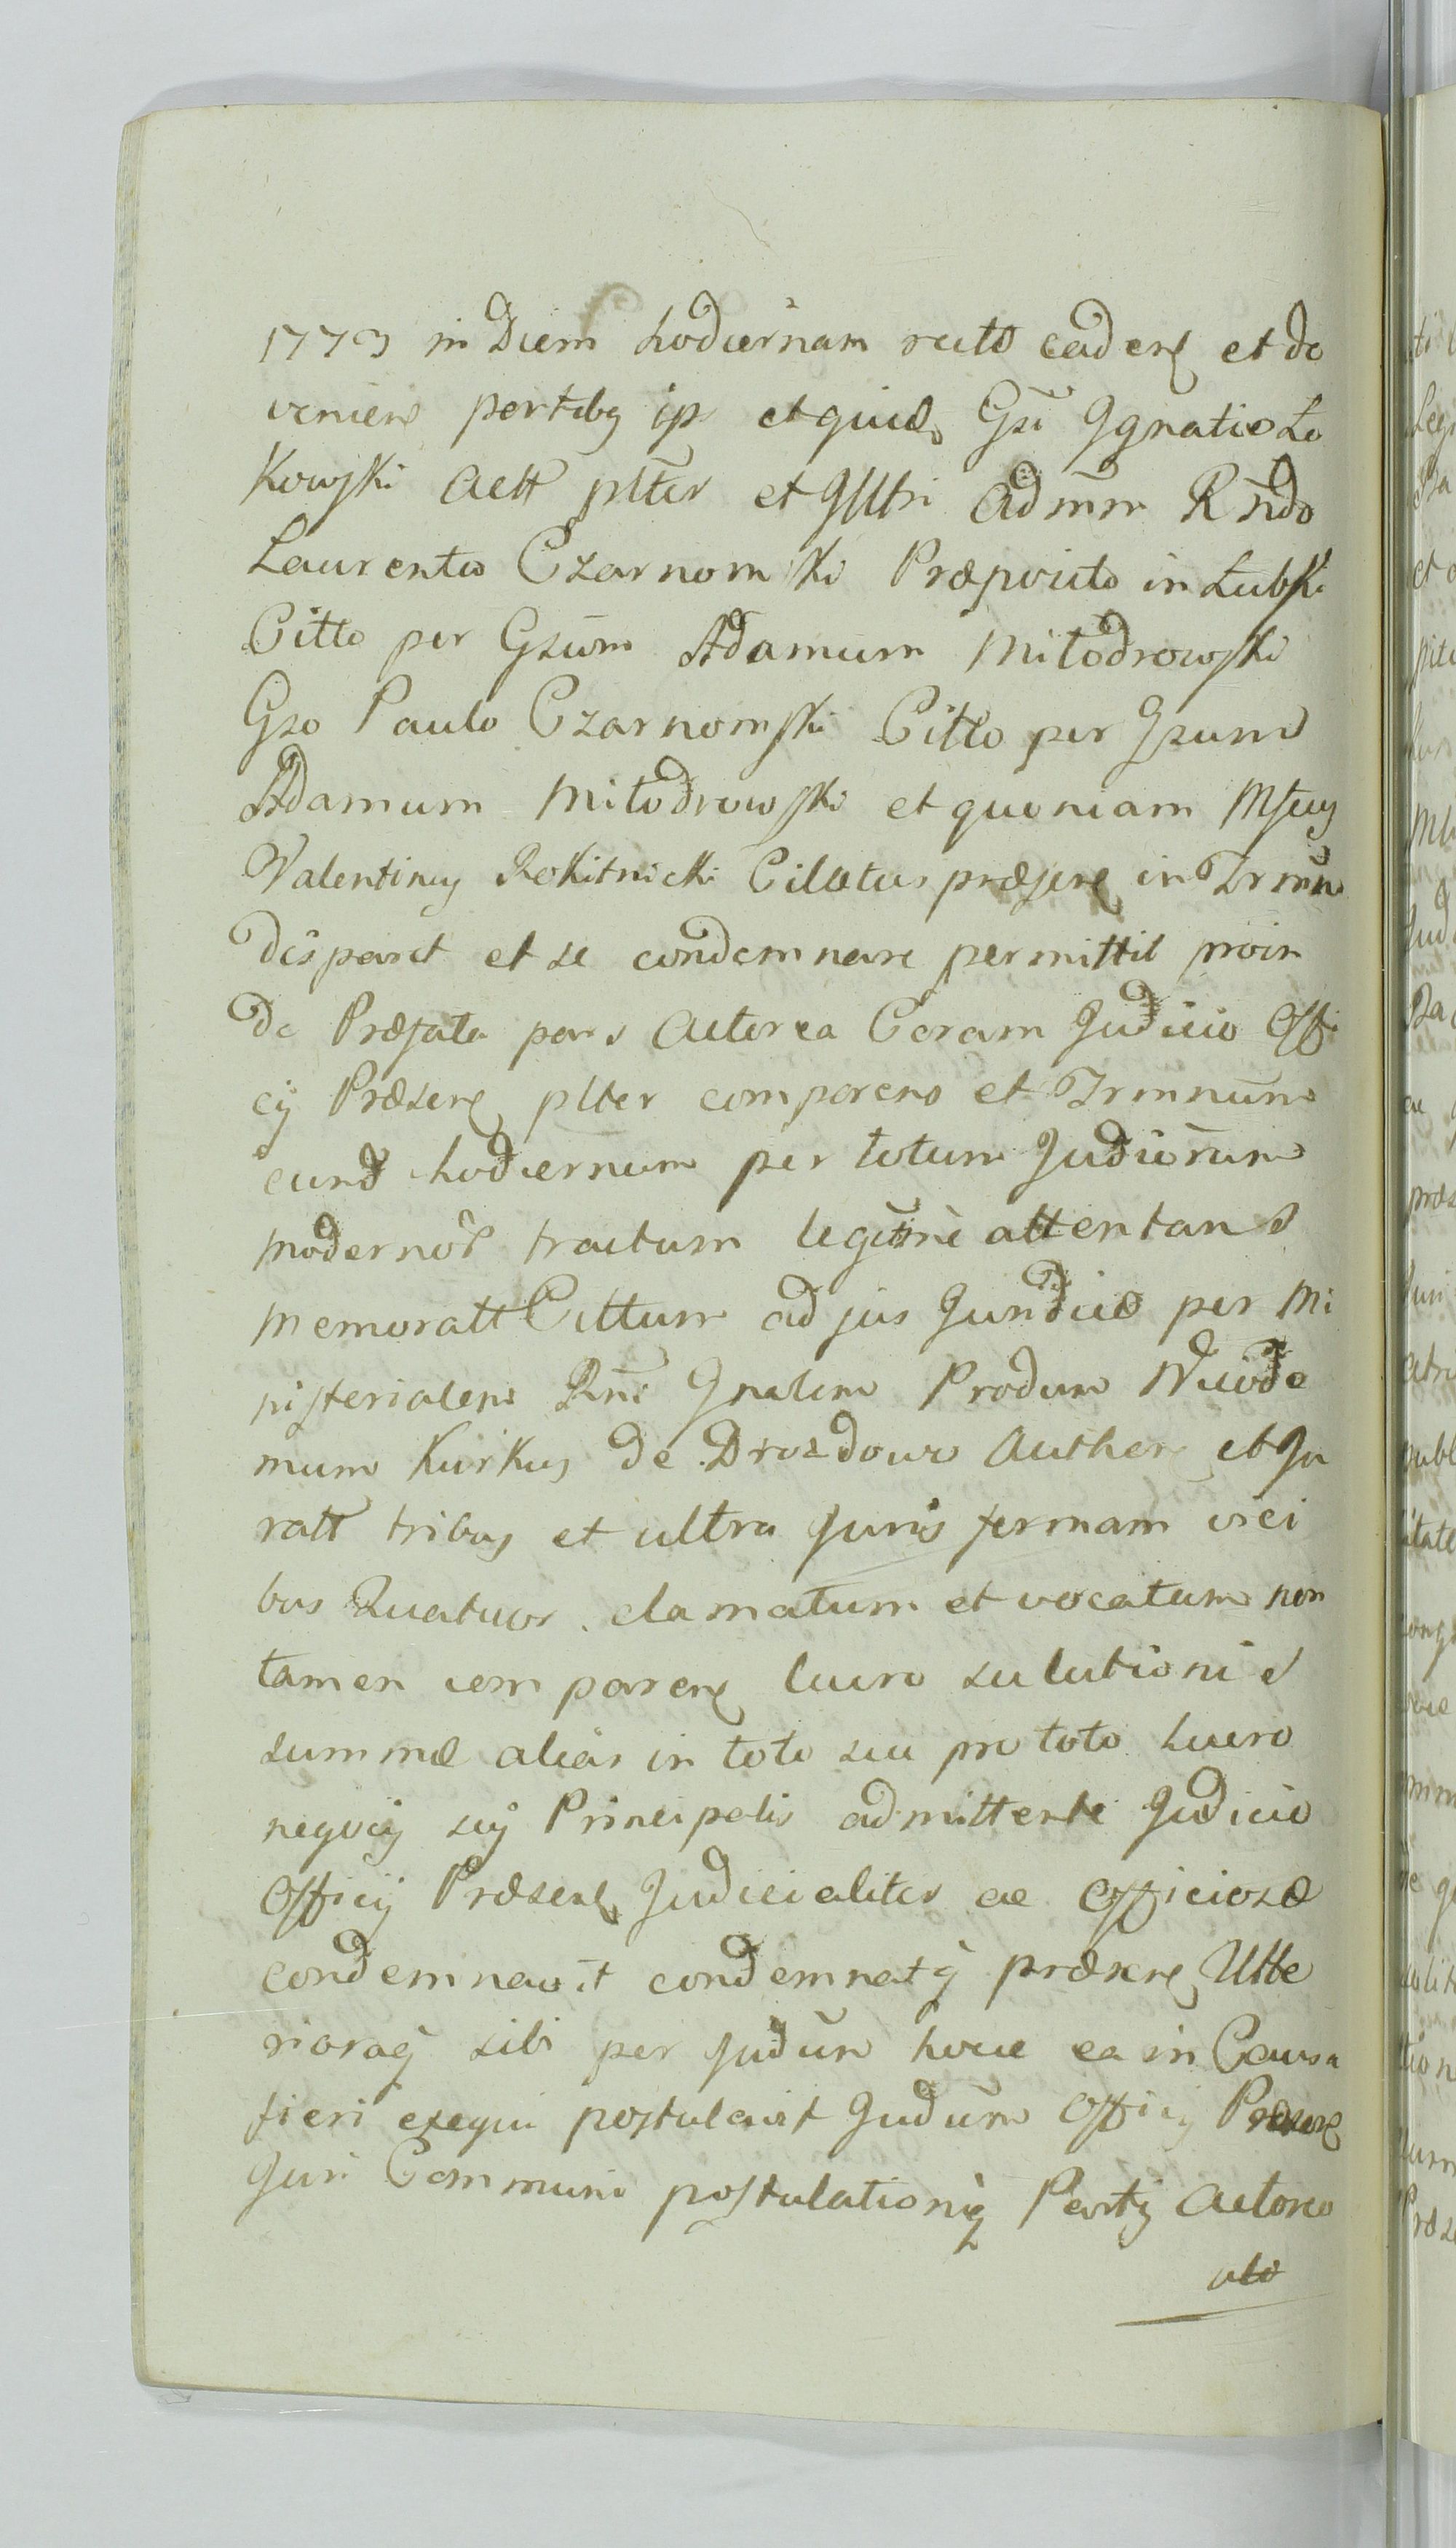 1773 in Diem hodiernam recto caden et de
veniens partibg ips et quidē Gsi Ignatio Lo
kowski Actt plter et Illtri Admm Rndo
Laurentio Czarnomski Præposito in Łubki
Citto per Gsum Adamum Miłodrowski
Gso Paulo Czarnomski Citto per Gsum
Adamum Miłodrowski et quoniam Msus
Valentinus Rokitnicki Citatus præsen in Trmno
disparet et se condemnare permittit proin
de Præfata pars Actorea Coram Judicio Offi
cij Præsen plter comparens et Trmnum
eund hodiernum per totum Judiciorum
modernor tractum legitime attentans
memoratt Cittum ad jus Juridice per Mi
nisterialem Rni Gnalem Produm Nicode
mum Kurkus de Drozdowo Authen et Ju
ratt tribus et ultra Juris formam vici
bus Quatuor clamatum et vocatum non
tamen comparen lucro solutionis
summæ alias in toto seu pro toto lucro
negocij sui Principalis admittente Judicio
Officij Præsen Judicialiter ac Officiose
condemnavit condemnatq præsen Ulte
rioraq sibi per Judum hocce ea in Causa
fieri exequi postulavit Judum Officij Præsen
Juri Communi postulationiq Partis Actorea
uti